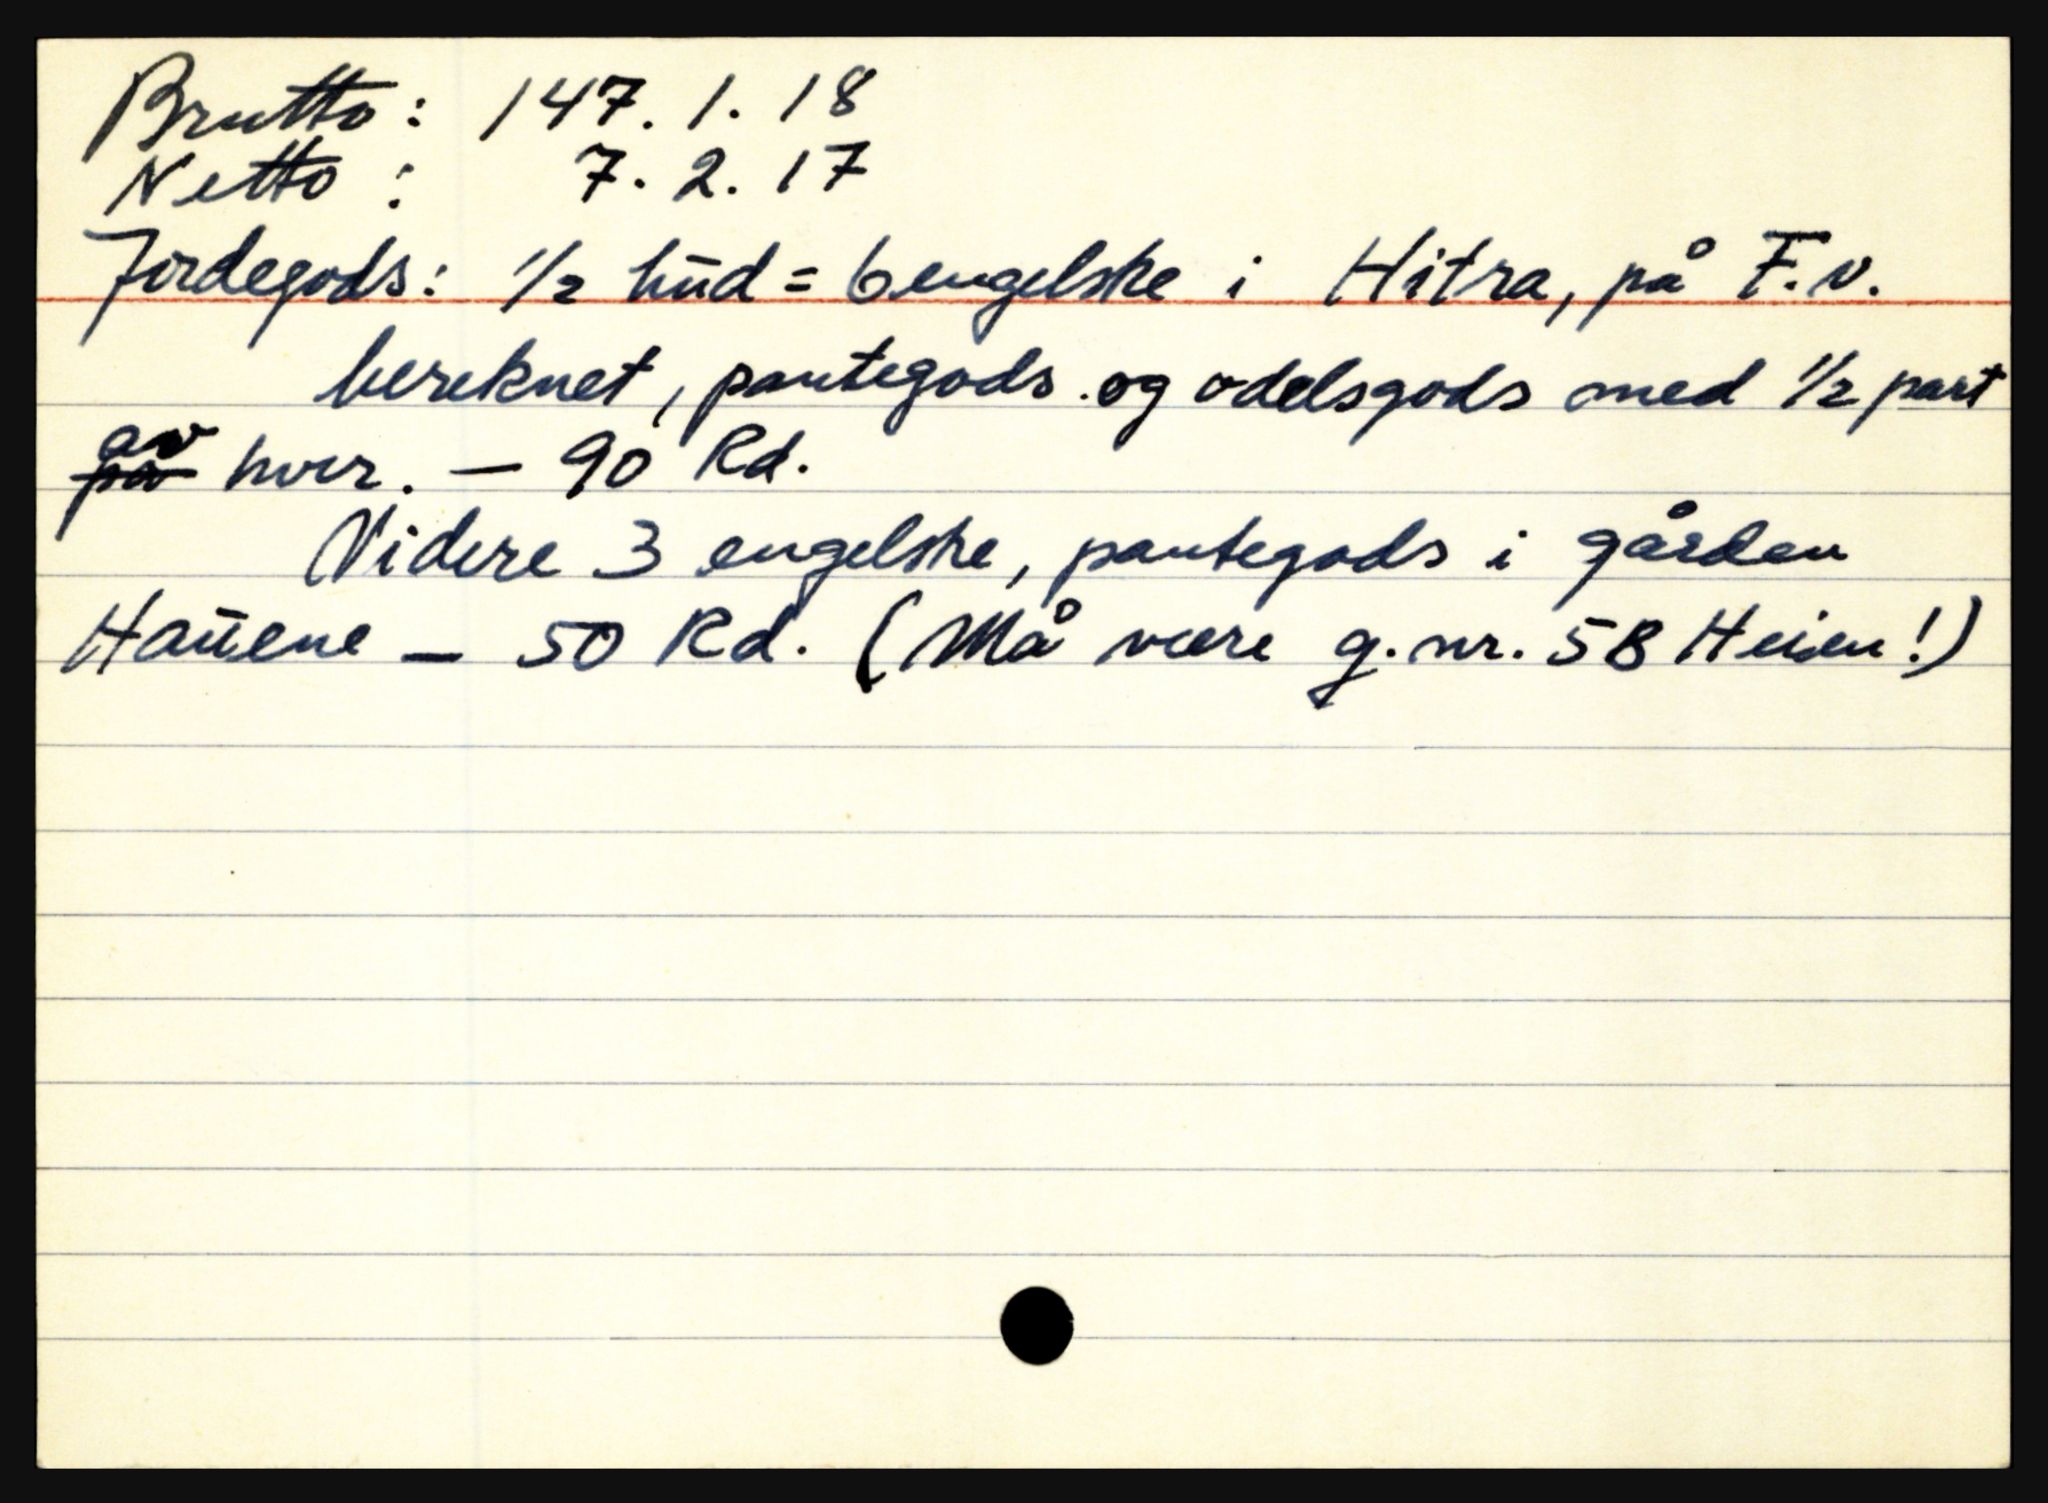 Brutto: 147. 1. 18
Netto: 7. 2. 17
Jordegods: 1/2 hūd = 6 engelske i Hitra, på F.v.
bereknet, pantegods og odelsgods med 1/2 part
på av hver. — 90 Rd.
Videre 3 engelske, pantegods i gården
Haūene — 50 Rd. (Må være g.nr. 58 Heien!)